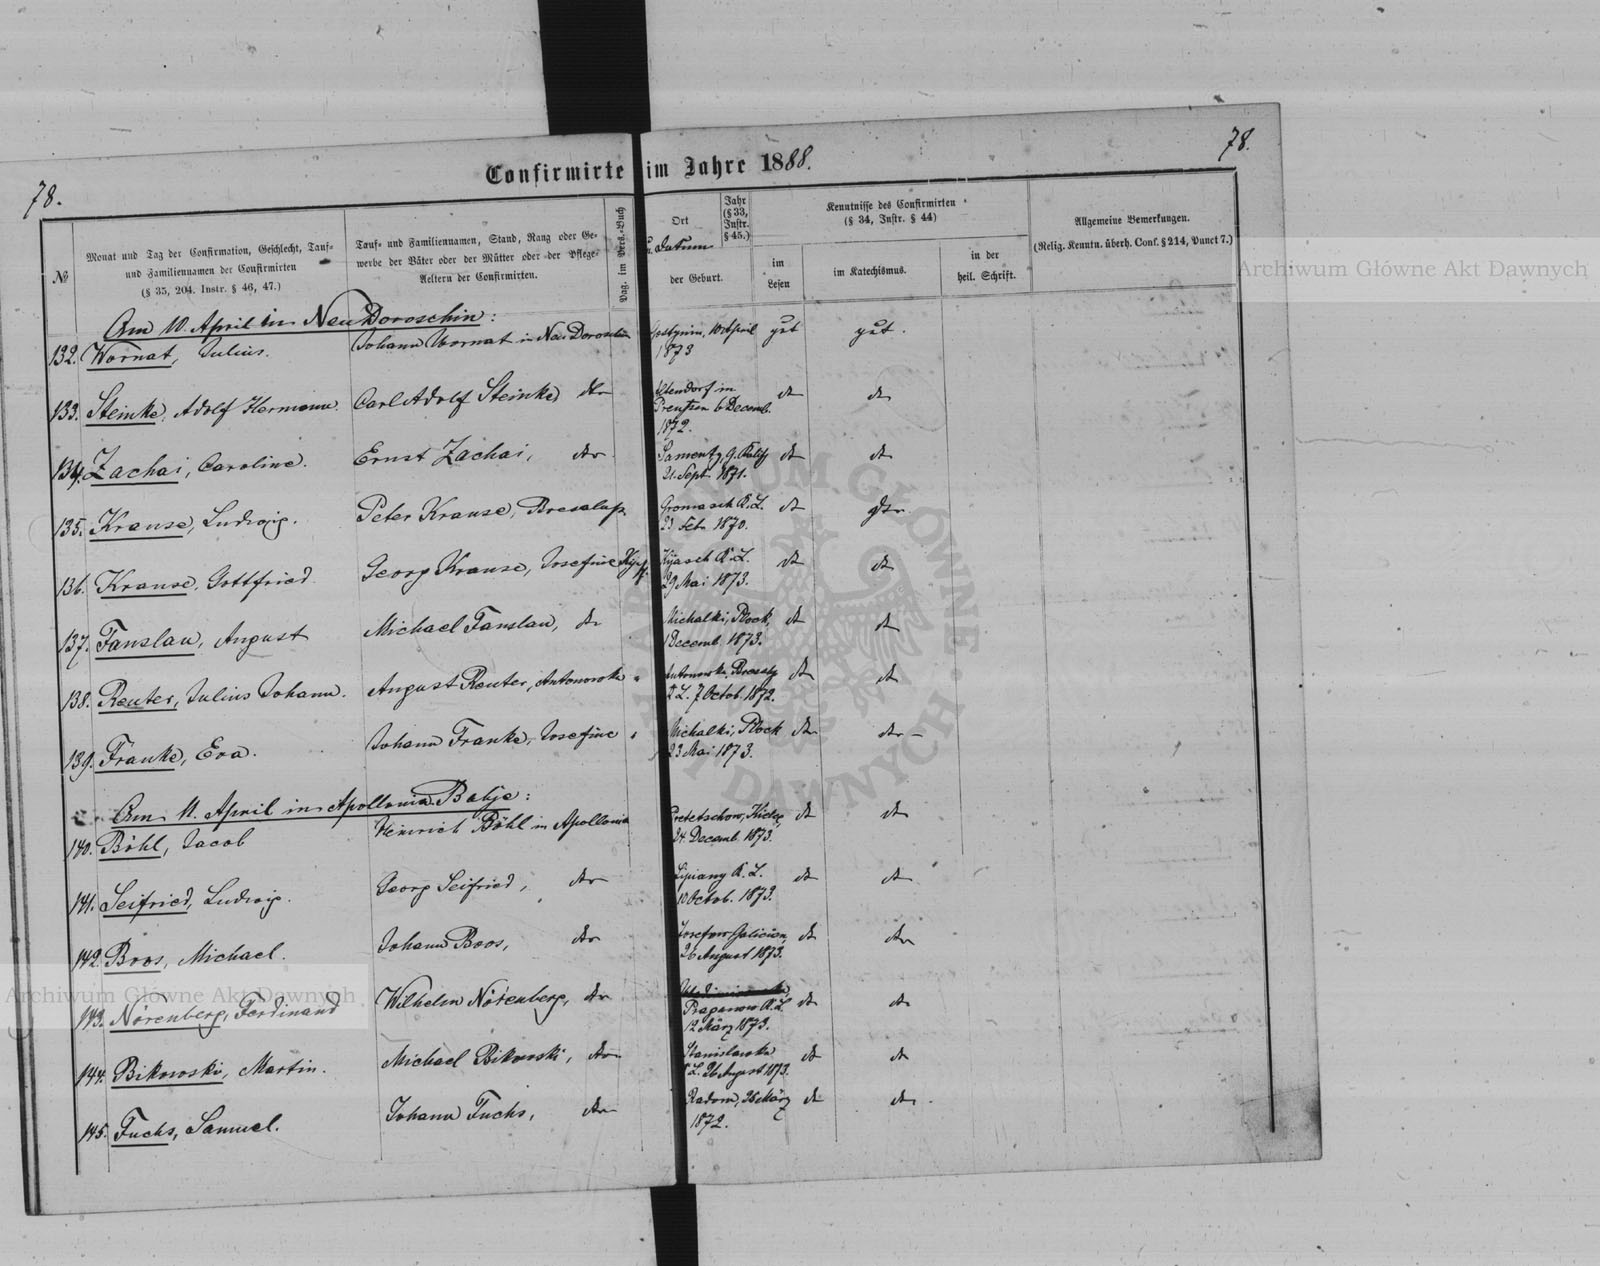 78.
Confirmirte im Jahre 1888.
78.
№
Monat und Tag der Confirmation, Geschlecht, Tauf-
und Familiennamen der Confirmirten
(§ 35, 204. Instr. § 46, 47.)
Tauf- und Familiennamen, Stand, Rang oder Ge-
werbe der Väter oder der Mütter oder der Pflege-
Aeltern der Confirmirten.
Pag. im Pers.-Buch
Ort
u. Datum
der Geburt.
Jahr
(§ 33,
Instr.
§ 45.)
Kenntnisse des Confirmirten
(§ 34, Instr. § 44)
im
Lesen
im Katechismus.
in der
heil. Schrift.
Allgemeine Bemerkungen.
(Relig. Kenntn. überh. Conf. § 214, Punct 7.)
Am 10. April in Neu Doroschin:
132. Wornat, Julius. Johann Wornat in Neu Doroschin 10 April gut gut.
1873
133. Steinke, Adolf Hermann. Carl Adolf Steinke, dto Altendorf in dt dt
Preußen 6 Decemb.
1872.
134. Zachai, Caroline. Ernst Zachai, dto Kalisz dt dt
21. Sept. 1871.
135. Krause, Ludwig. Peter Krause, Gromasch K.L. dt dto
23 Feb. 1870.
136. Krause, Gottfried Georg Krause, Josefine Kyasch K.L. dt dt
29 Mai 1873.
137. Fanslau, August Michael Fanslau, dto Michalki, Plock, dt dt
1 Decemb. 1873.
138. Reuter, Julius Johann. August Reuter, Antonowka " Antonowka dt dt
7 Octob. 1872.
139. Franke, Eva. Johann Franke, Josefine " Michalki, Plock dt dto
23 Mai 1873.
Am 11. April in Apollonia Batije:
140. Böhl, Jacob Heinrich Böhl in Apollonia Kielce, dt dt
24. Decemb. 1873.
141. Seifried, Ludwig. Georg Seifried, dto Lipiany K.L. dto dt
10 Octob. 1873.
142. Boos, Michael. Johann Boos, dto Josefow Galicien, dt dto
26 August 1873.
143. Nörenberg, Ferdinand Wilhelm Nörenberg, dto dt dt
K.L.
12 März 1873.
144. Bikowski, Martin. Michael Bikowski, dto Stanislawka dt dt
K.L. 26 August 1873.
145. Fuchs, Samuel. Johann Fuchs, dto Radom, 26 März dt dto.
1872.
Archiwum Główne Akt Dawnych
Archiwum Główne Akt Dawnych
ARCHIWUM GŁÓWNE AKT DAWNYCH